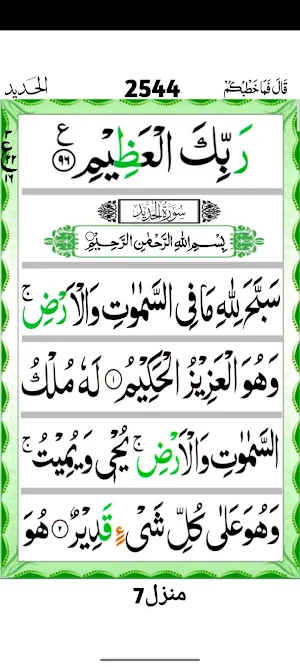 الحديد 2544 قَالَ فَمَا خَطْبُكُمْ
رَبِّكَ الْعَظِيْمِ ۝۹۶ ع
سُوْرَةُ الْحَدِيْد
بِسْمِ اللهِ الرَّحْمٰنِ الرَّحِيْمِ
سَبَّحَ لِلّٰهِ مَا فِى السَّمٰوٰتِ وَالْاَرْضِ ۚ
وَهُوَ الْعَزِيْزُ الْحَكِيْمُ ۝۱ لَهٗ مُلْكُ
السَّمٰوٰتِ وَالْاَرْضِ ۚ يُحْىٖ وَيُمِيْتُ ۚ
وَهُوَ عَلٰى كُلِّ شَىْءٍ قَدِيْرٌ ۝۲ هُوَ
منزل 7